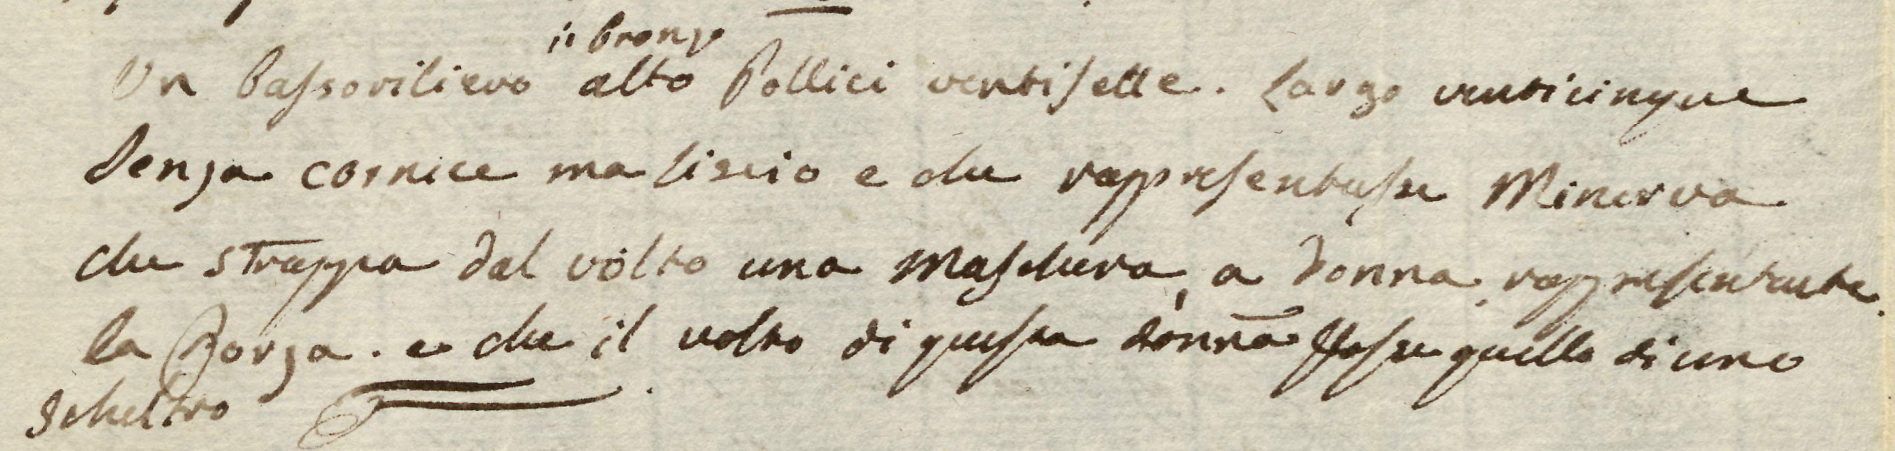 in bronzo
Un bassorilievo alto Pollici ventisette. Largo venticinque
Senza cornice ma liscio e che rappresentasse Minerva
che strappa dal volto una Maschera, a donna rappresentante
la Forza. e che il volto di questa donna fosse quello di uno
Scheltro